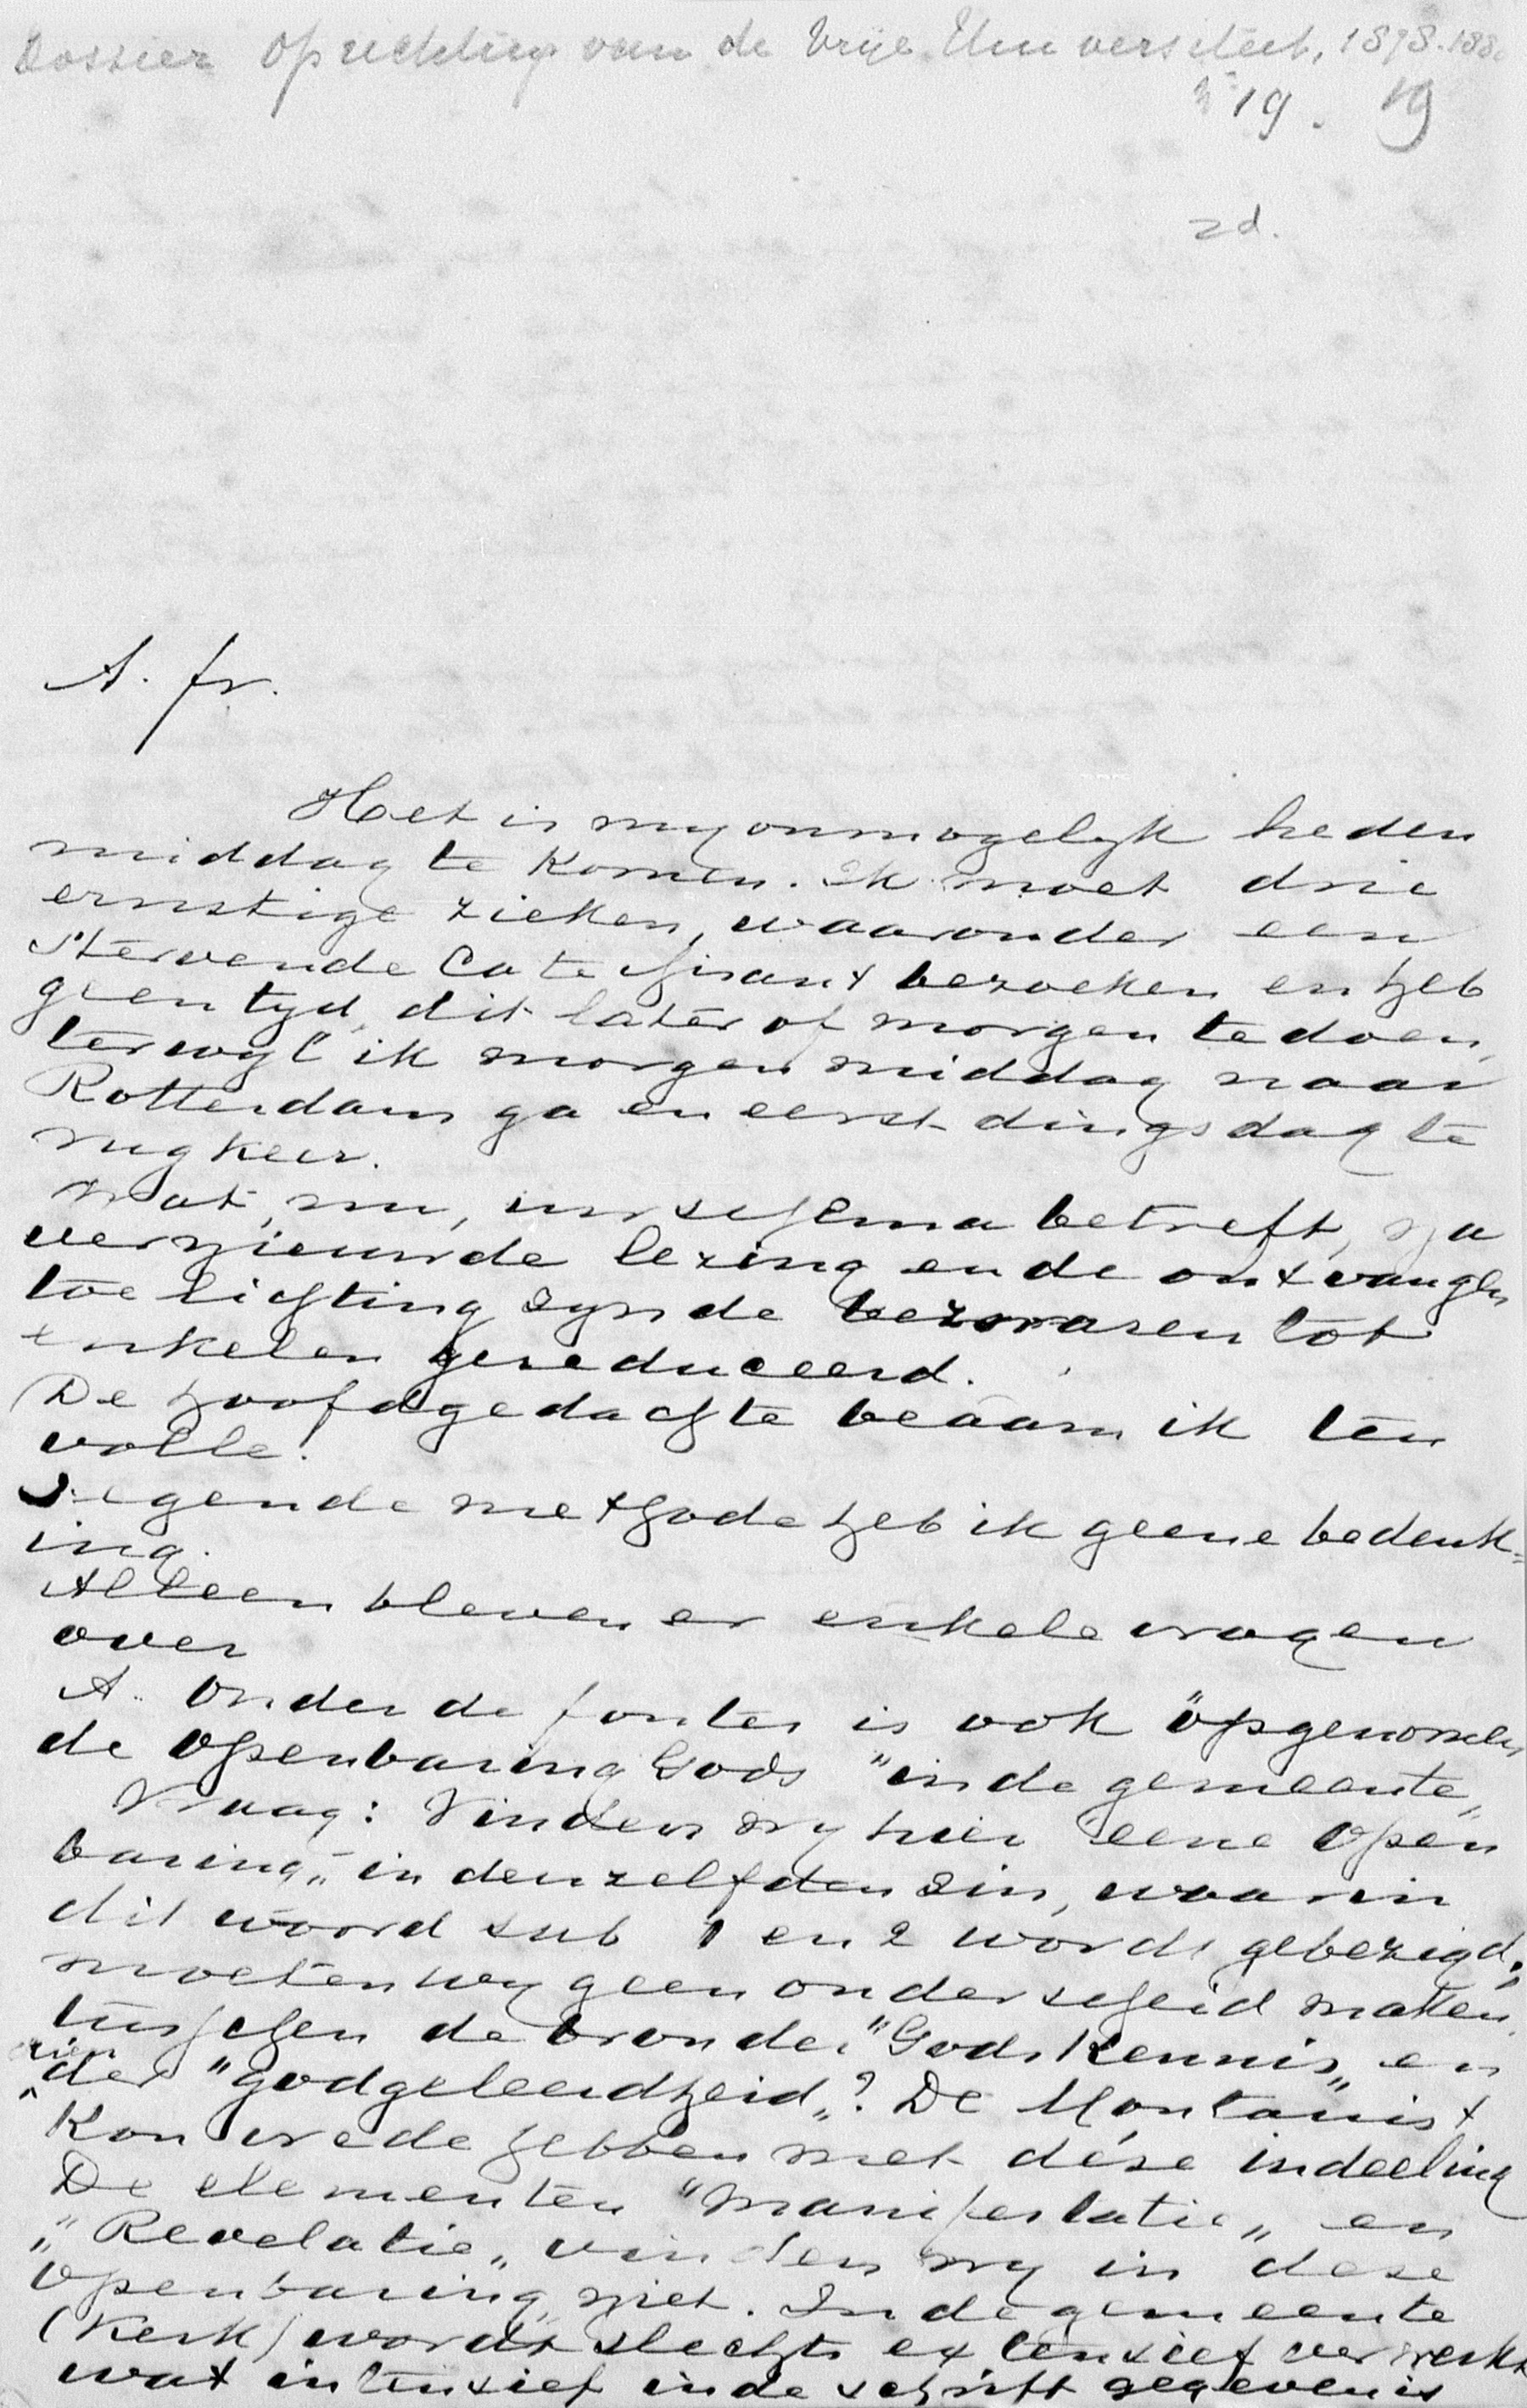 Dossier Oprichting van de Vrije Universiteit, 1878-188
19. 19
zd.
A. fr.
Het is my onmogelyk heden
middag te komen. Ik moet drie
ernstige zieken, waaronder een
stervende Catechisant bezoeken en heb
geen tyd, dit later of morgen te doen,
terwyl ik morgen middag naar
Rotterdam ga en eerst dingsdag te
rugkeer.
Wat, nu, uw schema betreft, na
vernieuwde lezing en de ontvangen
toelichting zyn de bezwaren tot
enkelen gereduceerd.
De hoofdgedachte beaam ik ten
volle.
Tegen de methode heb ik geene bedenk=
ing.
Alleen bleven er enkele vragen
over
A. Onder de fontes is ook "opgenomen
de Openbaring Gods "in de gemeente„
Vraag: Vinden wy hier "eene Open
baring„ in denzelfden zin, waarin
dit woord sub 1 en 2 wordt gebezigd;
moeten wy geen onderscheid maken
tusschen de bron der "Godskennis„ en
der "godgeleerdheid„? De Montanist
Kon vrede hebben met déze indeeling
De elementen "manifestatie„ en
"Revelatie„ vinden wy in deze
Openbaring niet. In de gemeente
(Kerk) wordt slechts extensief verwerkt
wat intensief in de schrift gegeven is